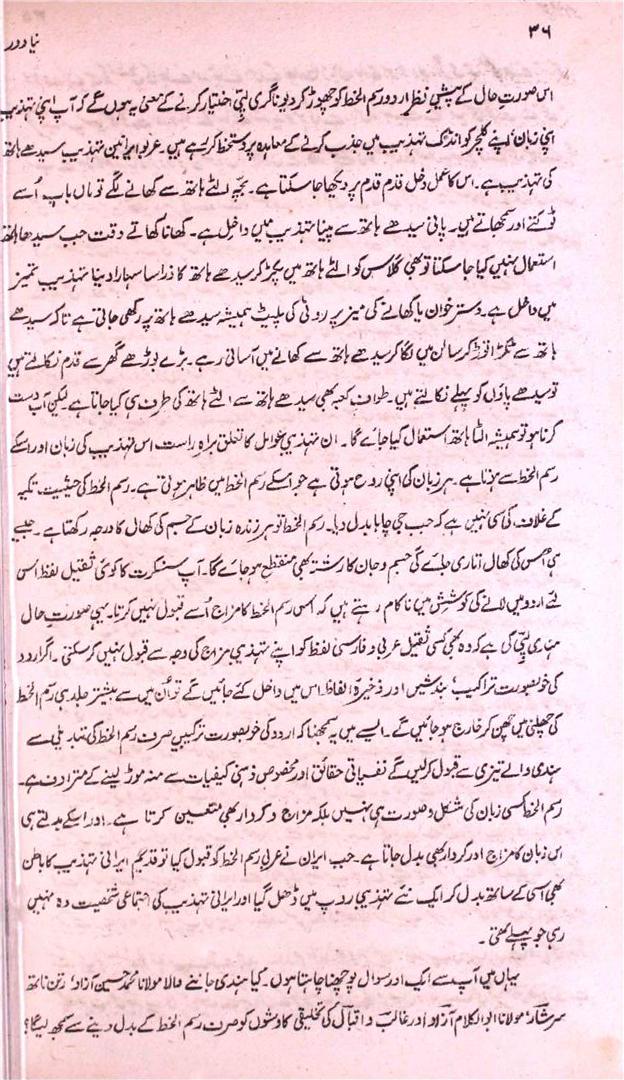 ۳۶
نیا دور
اس صورتِ حال کے پیشِ نظر اردو رسم الخط کو چھوڑ کر دیوناگری لپی اختیار کرنے کے معنی یہ ہوں گے کہ آپ اپنی تہذیب
اپنی زبان، اپنے کلچر کو انڈک تہذیب میں جذب کرنے کے معاہدہ پر دستخط کر رہے ہیں۔ عربو ایرانین تہذیب سیدھے ہاتھ
کی تہذیب ہے۔ اس کا عمل دخل قدم قدم پر دیکھا جا سکتا ہے۔ بچہ الٹے ہاتھ سے کھانے لگے تو ماں باپ اُسے
ٹوکتے اور سمجھاتے ہیں۔ پانی سیدھے ہاتھ سے پینا تہذیب میں داخل ہے۔ کھانا کھاتے وقت جب سیدھا ہاتھ
استعمال نہیں کیا جا سکتا تو بھی گلاس کو الٹے ہاتھ میں پکڑ کر سیدھے ہاتھ کا ذرا سا سہارا دینا تہذیب تمیز
میں داخل ہے۔ دستر خوان یا کھانے کی میز پر روٹی کی پلیٹ ہمیشہ سیدھے ہاتھ پر رکھی جاتی ہے تاکہ سیدھے
ہاتھ سے ٹکڑا توڑ کر سالن میں لگا کر سیدھے ہاتھ سے کھانے میں آسانی رہے۔ بڑے بوڑھے گھر سے قدم نکالتے ہیں
تو سیدھے پاؤں کو پہلے نکالتے ہیں۔ طوافِ کعبہ بھی سیدھے ہاتھ سے الٹے ہاتھ کی طرف ہی کیا جاتا ہے۔ لیکن آبدست
کرنا ہو تو ہمیشہ الٹا ہاتھ استعمال کیا جائے گا۔ ان تہذیبی عوامل کا تعلق براہِ راست اس تہذیب کی زبان اور اسکے
رسم الخط سے ہوتا ہے۔ ہر زبان کی اپنی روح ہوتی ہے جو اسکے رسم الخط میں ظاہر ہوتی ہے۔ رسم الخط کی حیثیت تکیہ
کے غلاف کی سی نہیں ہے کہ جب جی چاہا بدل دیا۔ رسم الخط تو ہر زندہ زبان کے جسم کی کھال کا درجہ رکھتا ہے۔ جیسے
ہی اس کی کھال اتاری جائے گی جسم و جان کا رشتہ بھی منقطع ہو جائے گا۔ آپ سنسکرت کا کوئی ثقیل لفظ اس
لئے اردو میں لانے کی کوشش میں ناکام رہتے ہیں کہ اس رسم الخط کا مزاج اُسے قبول نہیں کرتا۔ یہی صورتِ حال
ہندی لپی کی ہے کہ وہ بھی کسی ثقیل عربی و فارسی لفظ کو اپنے تہذیبی مزاج کی وجہ سے قبول نہیں کر سکتی۔ اگر اردو
کی خوبصورت تراکیب، بندشیں اور ذخیرۂ الفاظ اس میں داخل کئے جائیں گے تو اُن میں سے بیشتر جلد ہی رسم الخط
کی چھلنی میں چھن کر خارج ہو جائیں گے۔ ایسے میں یہ سمجھنا کہ اردو کی خوبصورت ترکیبیں صرف رسم الخط کی تبدیلی سے
ہندی والے تیزی سے قبول کر لیں گے نفسیاتی حقائق اور مخصوص ذہنی کیفیات سے منہ موڑ لینے کے مترادف ہے۔
رسم الخط کسی زبان کی شکل و صورت ہی نہیں بلکہ مزاج و کردار بھی متعین کرتا ہے۔ اور اسکے بدلتے ہی
اس زبان کا مزاج اور کردار بھی بدل جاتا ہے۔ جب ایران نے عربی رسم الخط کو قبول کیا تو قدیم ایرانی تہذیب کا باطن
بھی اسی کے ساتھ بدل کر ایک نئے تہذیبی روپ میں ڈھل گیا اور ایرانی تہذیب کی اجتماعی شخصیت وہ نہیں
رہی جو پہلے تھی۔
یہاں میں آپ سے ایک اور سوال پوچھنا چاہتا ہوں۔ کیا ہندی جاننے والا مولانا محمد حسین آزاد، رتن ناتھ
سرشار، مولانا ابو الکلام آزاد اور غالب و اقبال کی تخلیقی کاوشوں کو صرف رسم الخط کے بدل دینے سے سمجھ لیگا؟